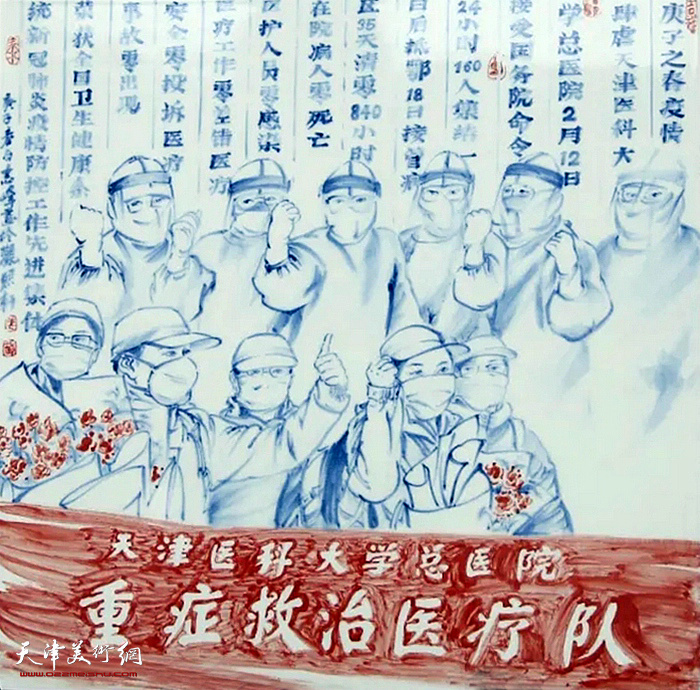 庚子之春疫情
肆虐天津医科大
学总医院2月12日
接受医务院命令
24小时160人集结一
日后抵鄂18日接首病
区35天清零840小时
在院病人零死亡
医护人员零感染
医疗工作零差错医疗
安全零投诉医疗
事故零出现
荣获全国卫生健康系
统新冠肺炎疫情防控工作先进集体
天津医科大学总医院
重症救治医疗队
天津美術網
www.022meishu.com